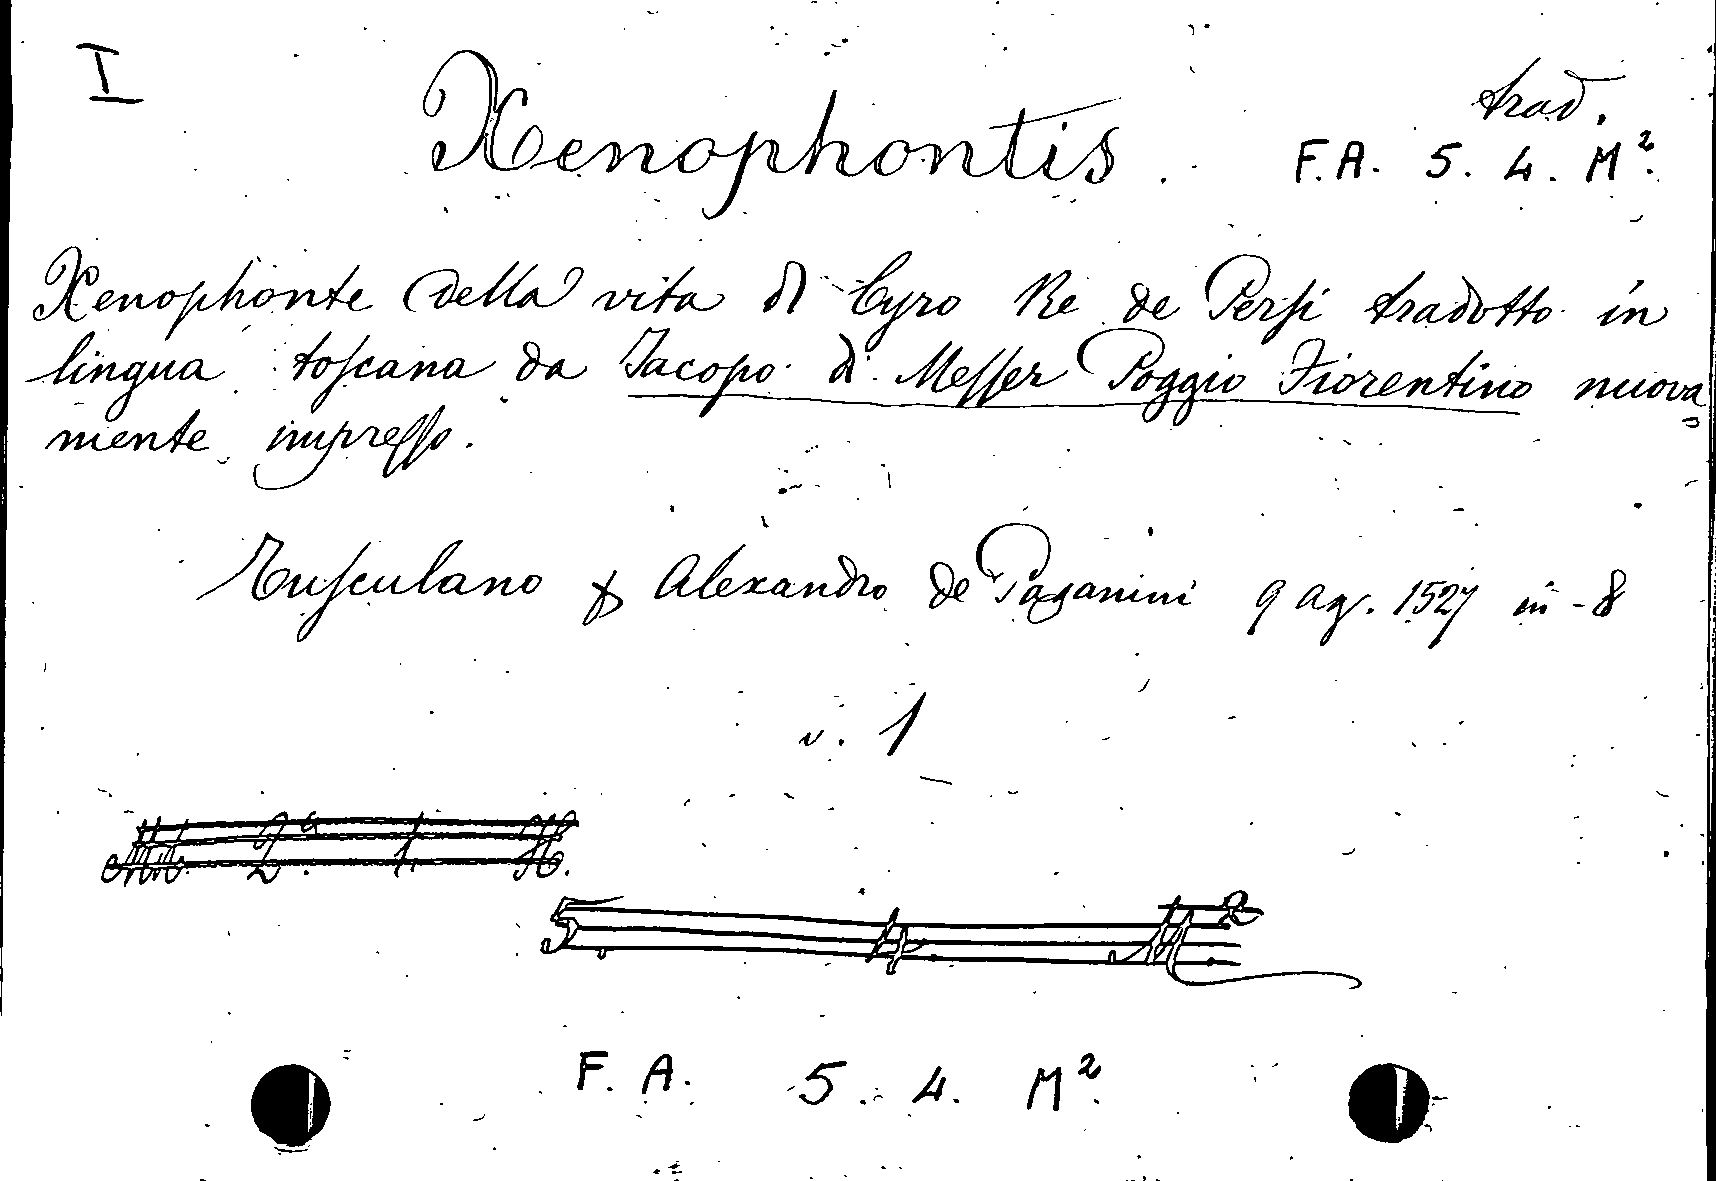 I
trad.
Xenophontis. F.A. 5. 4. M².
Xenophonte della vita di Cyro Re de Persi tradotto in
lingua toscana da Jacopo di Messer Poggio Fiorentino nuova
mente impresso.
Tusculano Alexandro de Paganini 9 Ag. 1527 in-8
v. 1
5. 4. M²
F. A. 5. 4. M².